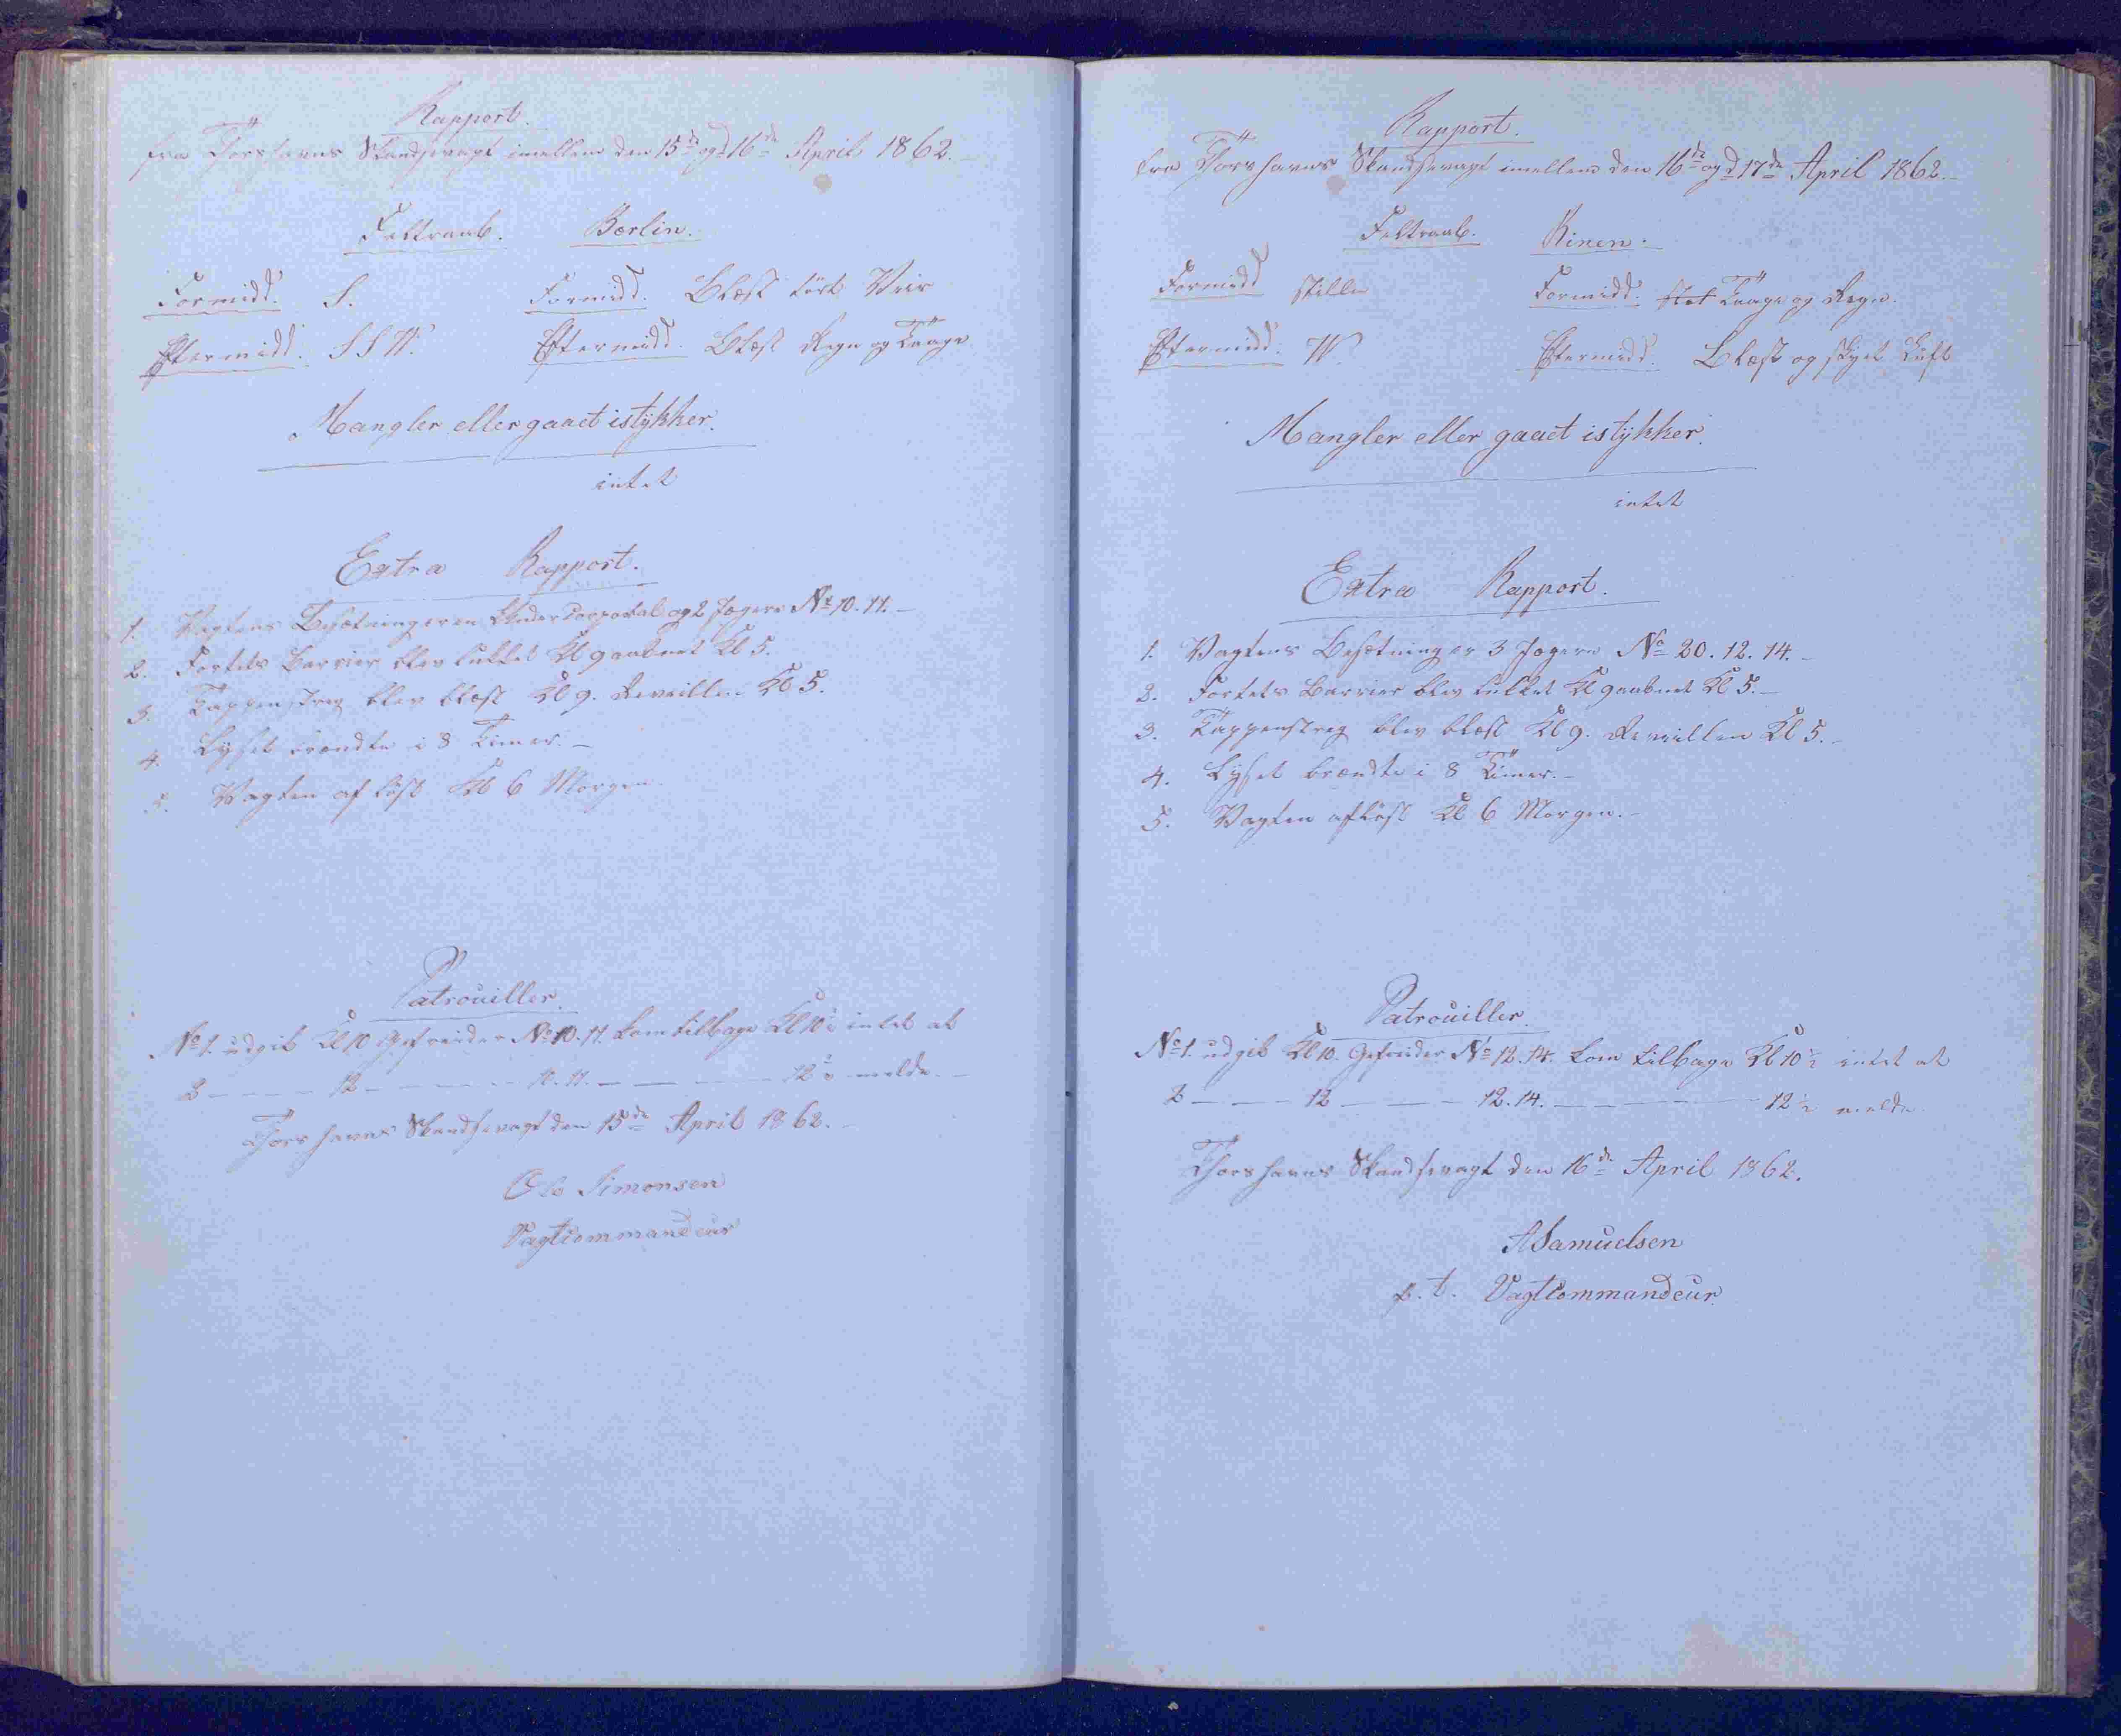 Rapport.
fra Thorshavns Skandsevagt imellem den 15de og d 16de April 1862.
Feltraab. Berlin.
Formidd. S. Formidd. Blæst tört Veir
Eftermidd. SSW. Eftermidd. Blæst Regn og Taage
Mangler eller gaaet istÿkker.
intet
Extra Rapport.
1. Vagtens Besætning er en Under Corporal og 2 Jægere No 10. 11.
2. Fortets Barrier blev lukket Kl 9 aabnet Kl 5.
3. Tappenstreg blev blæst Kl 9. Reveillen Kl 5.
4. Lyset brændte i 8 Timer.
5. Vagten aflöst Kl 6 Morgen.
Patrouiller.
No 1. udgik Kl 10 Gefreider No 10. 11. kom tilbage Kl 10½ intet at
2 — — — 12 — — — — 10. 11. — — — 12½ melde. —
Thorshavns Skandsevagt den 15de April 1862.
Ole Simonsen
Vagtcommandeur
Rapport.
fra Thorshavns Skandsevagt imellem den 16de og d 17de April 1862.
Feltraab.
Formidd stille Formidd. Taage og Regn.
Eftermidd. W. Eftermidd. Blæst og skyet Luft
Mangler eller gaaet istÿkker.
intet
Extra Rapport.
1. Vagtens Besætning er 3 Jægere No 20. 12. 14.
2. Fortets Barrier blev lukket Kl 9 aabnet Kl 5.
3. Tappenstreg blev blæst Kl 9. Reveillen Kl 5.
4. Lyset brændte i 8 Timer.
5. Vagten aflöst Kl 6 Morgen.
Patrouiller.
No 1. udgik Kl 10. Gefreider No 12. 14. kom tilbage Kl 10½ intet at
2 — — — 12 — — — 12. 14. — — — — 12½ melde.
Thorshavns Skandsevagt den 16de April 1862.
A Samuelsen
p. t. Vagtcommandeur